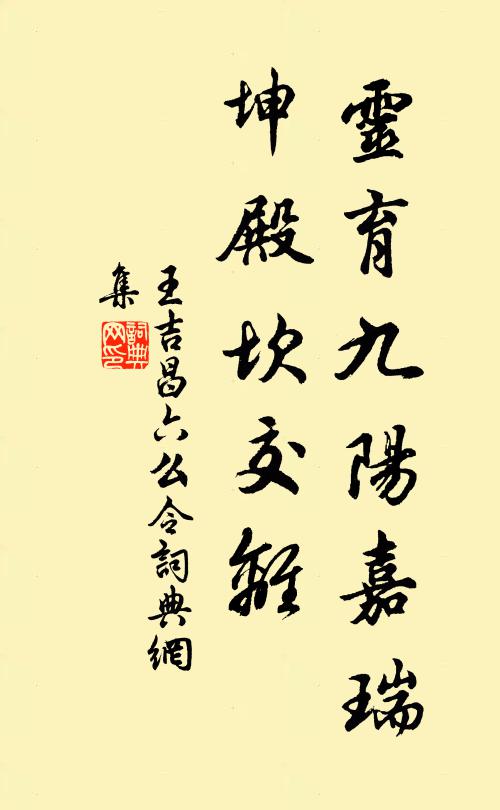 靈育九陽嘉瑞
坤殿坎交離
王吉昌六么令詞典網
集
詞典網印